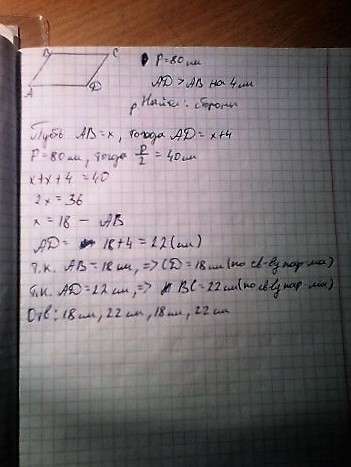 B C
A D
P=80 см
AD > AB на 4 см
Найти: стороны
Пусть AB=x, тогда AD=x+4
P=80 см, тогда P/2 =40 см
x+x+4=40
2x=36
x=18 – AB
AD= 18+4=22(см)
т.к. AB=18 см, => CD=18 см (по св-ву пар-ма)
т.к. AD=22 см, => BC=22 см (по св-ву пар-ма)
Отв: 18 см, 22 см, 18 см, 22 см